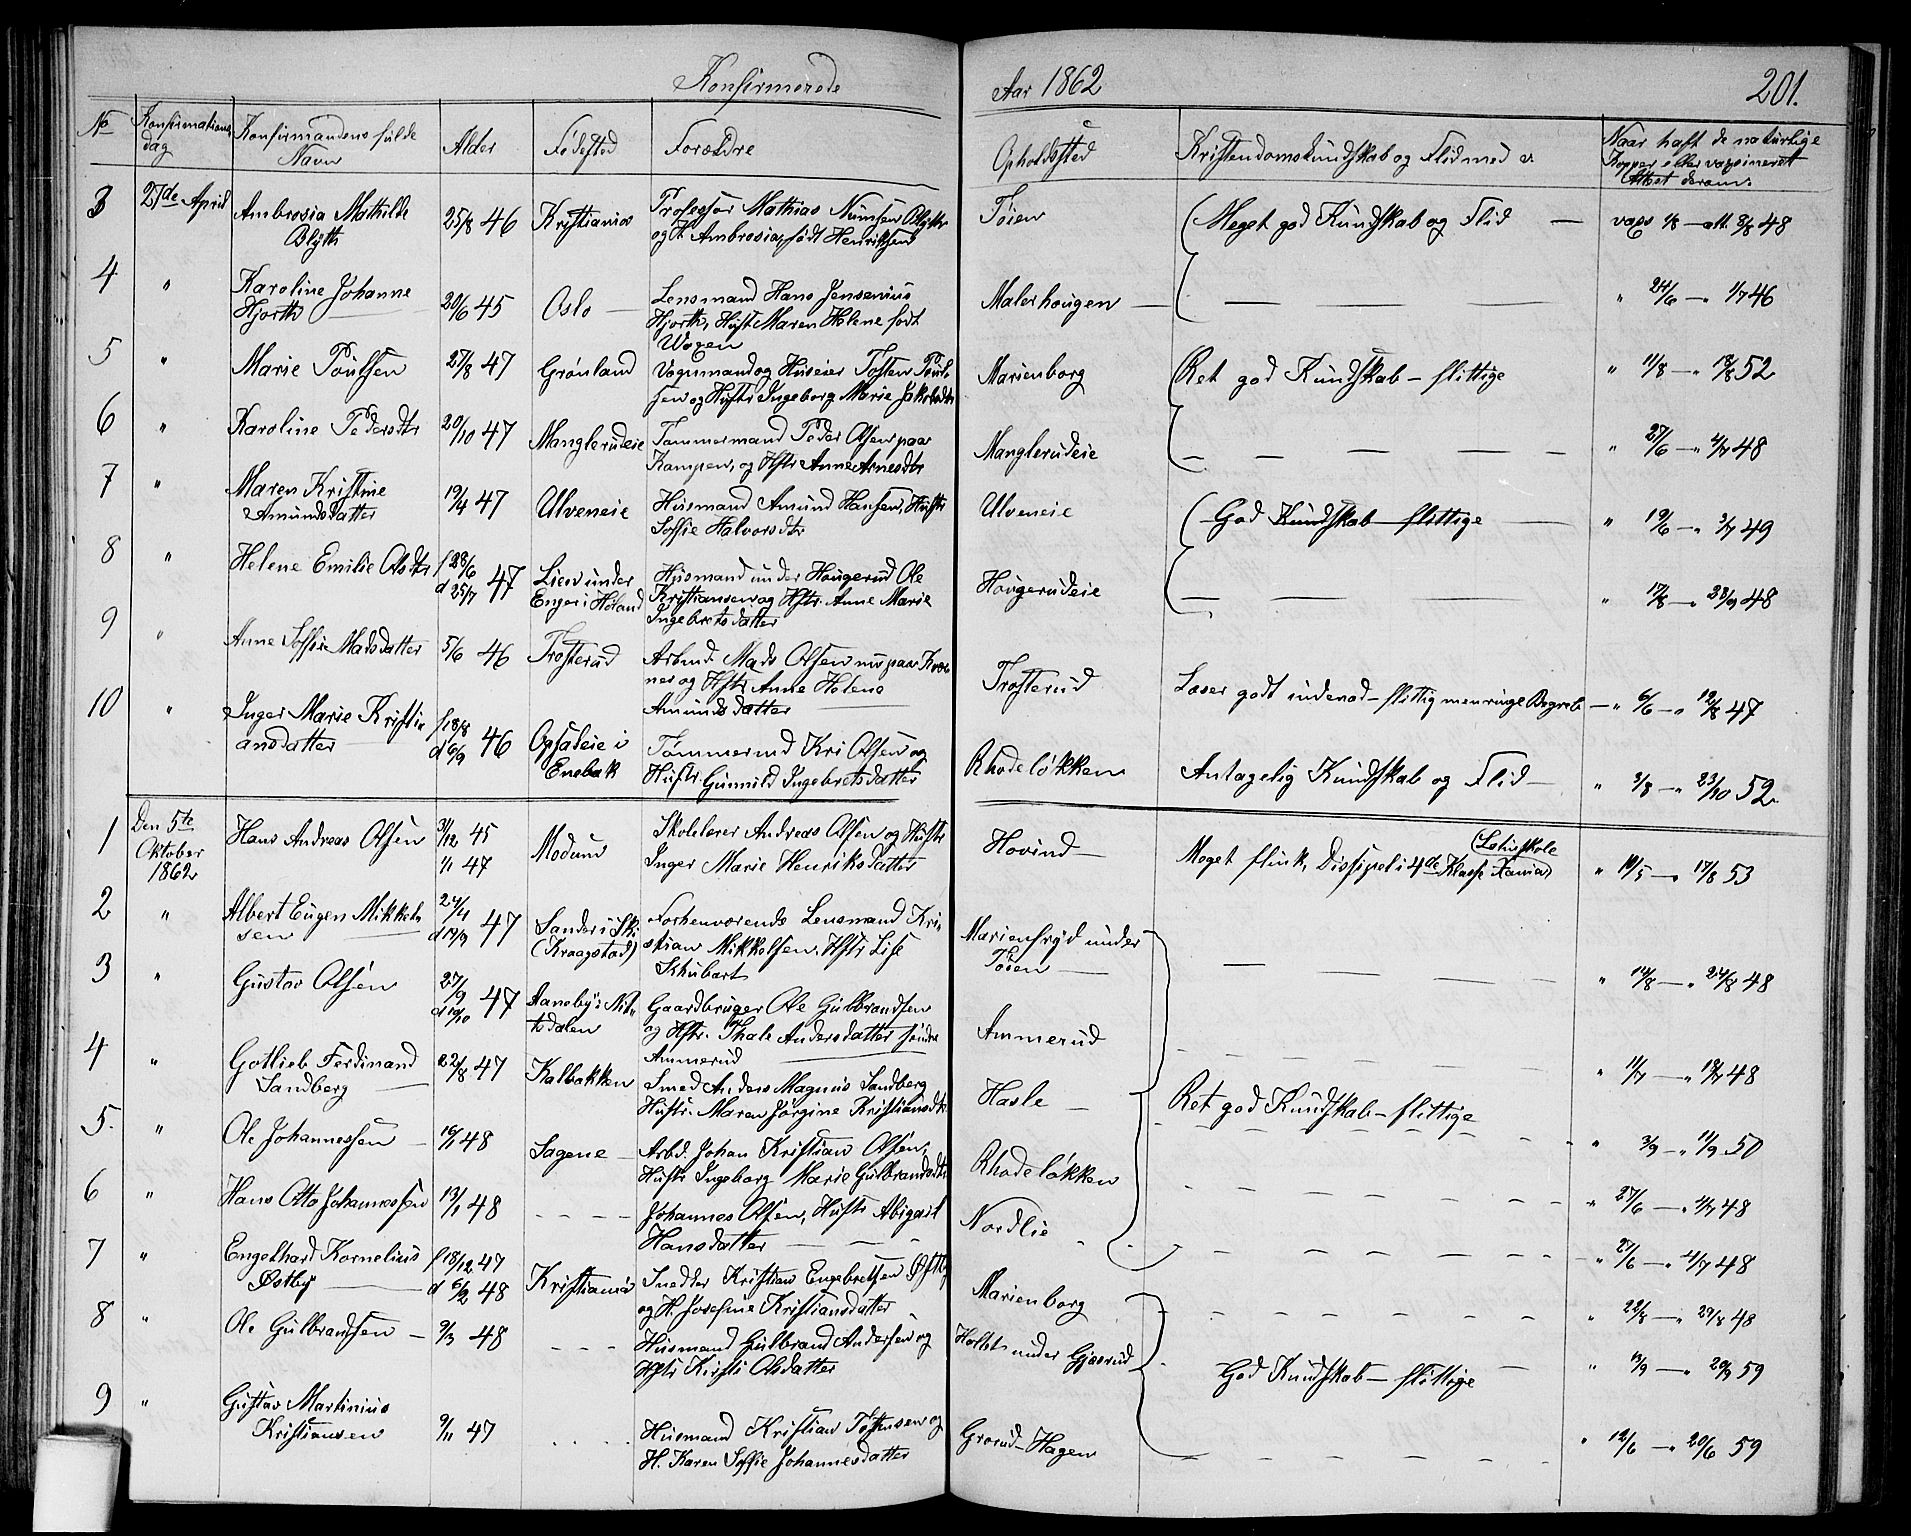 Konfirmerede Aar 1862 201.
No Konfirmations dag Konfirmandens fulde Navn Alder Fødested Forældre Opholdssted Kristendomskundskab og Flid med v Naar haft de naturlige Kopper eller vaxineret Attest derom.
3 27de April Ambrosia Mathilde 25/8 46 Kristiania Professor Mathias Numsen Blytt Tøien Meget god Kundskab og Flid — vax 1/8 — att. 8/8 48
Blytt og H. Ambrosia, født Henriksen
4 " Karoline Johanne 20/6 45 Oslo — Lensmand Hans Jensenius Malerhougen — — — — — " 24/6 — " 1/7 46
Hjorth Hjorth, Hust Maren Helene født
Wogen
5 " Marie Poulsen 27/8 47 Grønland Vognmand og Huseier Tosten Poul- Marienborg Ret god Kundskab — flittige " 11/8 — " 18/8 52
sen og Hustr Ingeborg Marie Jakobsdtr
6 " Karoline Pedersdtr 20/10 47 Manglerudeie Tømmermand Peder Olsen paa Manglerudeie — — — — — " 27/6 — " 4/7 48
Kampen, og Hstr Anne Arnesdtr
7 " Maren Kristine 19/4 47 Ulveneie Husmand Amund Hansen, Hustr Ulveneie God Kundskab — flittige — " 19/6 — " 3/7 49
Amundsdatter Soffie Halvorsdtr
8 " Helene Emilie Olsdtr f 28/6 d 25/7 47 Lien under Husmand under Hougerud Ole Hougerudeie — — — — " 17/8 — " 23/9 48
Enger i Høland Kristiansen og Hstr. Anne Marie
Ingebretsdatter
9 " Anne Soffie Madsdatter 5/6 46 Trosterud Arbmd. Mads Olsen nu paa Kvær Trosterud Læser godt indenad — flittig men ringe Begreb — " 6/6 — " 12/8 47
ner og Hstr Anne Helene
Amundsdatter
10 " Inger Marie Kristi- f 18/8 d 6/9 46 Opsaleie i Tømmermd Kri Olsen og Rhodeløkken Antagelig Kundskab og Flid — " 3/8 — " 23/10 52
ansdatter — Enebak Hustr. Gunnild Ingebretsdatter
1 Den 5te Hans Andreas Olsen 31/12 45 Modum Skolelærer Andreas Olsen og Hustr Hovind — Meget flink, Dissipel i 4de Klasse Xania (Latinskole " 10/5 — " 17/8 53
Oktober 1/1 47 Inger Marie Henriksdatter
1862
2 " Albert Eugen Mikkel- 24/4 d 19/9 47 Sander i Ski Forhenværende Lensmand Kri- Marienfryd under — — — — " 14/8 — " 24/8 48
sen (Kraagstad) stian Mikkelsen, Hstr Lise Tøien —
Schubart
3 " Gustav Olsen 27/9 d 10/10 47 Aaneby i Nit- Gaardbruger Ole Gulbrandsen Ammerud — — — — " 11/7 — " 18/7 48
tedalen og Hstr. Thale Andersdatter søndre
Ammerud
4 " Gotlieb Ferdinand 22/8 47 Kalbakken Smed Anders Magnus Sandberg Hasle — Ret god Kundskab — flittige " 3/9 — " 11/9 50
Sandberg — Hustr. Maren Jørgine Kristiansdtr
5. " Ole Johannessen — 10/1 48 Sagene — Arbd. Johan Kristian Olsen, Rhodeløkken — — — — " 27/6 — " 4/7 48
Hustr Ingeborg Marie Gulbrandsdtr
6 " Hans Otto Johannessen 13/1 48 - - - - Johannes Olsen, Hustr Abigael Nordlie — — — — " 27/6 — " 4/7 48
Hansdatter — — "
7 " Engelhard Kornelius f 18/12 47 Kristiania Snedker Kristian Engebretsen Østby Marienborg — — — — " 22/8 — " 29/8 48
Østby — d 6/2 48 og H. Josefine Kristiansdatter
8 " Ole Gulbrandsen — 9/3 48 - - - Husmand Gulbrand Andersen og Holtet under Gjærud God Kundskab — flittige " 13/9 — " 20/9 59
Hstr Kirsti Olsdatter
9 " Gustav Martinius 9/11 47 . . . . Husmand Kristian Tostensen og Grorud-Hagen — — — — " 12/6 — " 20/6 59
Kristiansen H. Karen Soffie Johannesdatter